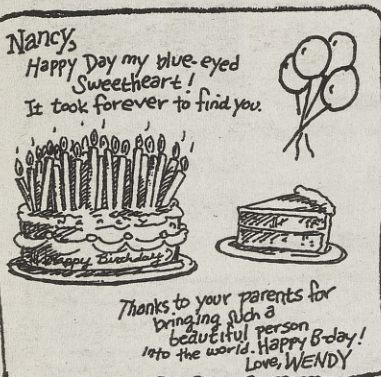 Nancy,
Happy Day my blue-eyed
Sweetheart!
It took forever to find you.
Happy Birthday
Thanks to your parents for
bringing such a
beautiful person
into the world. Happy B-day!
Love, WENDY